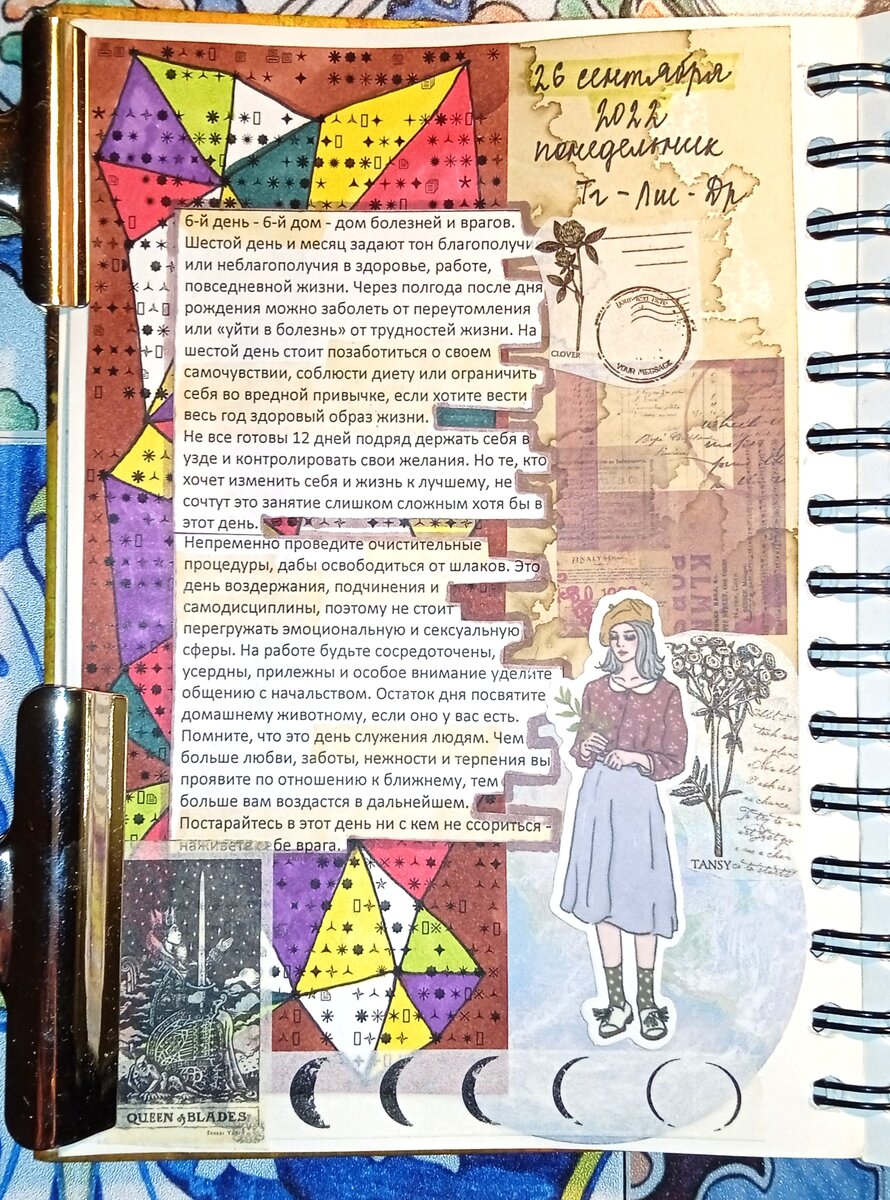 26 сентября
2022
понедельник
Тг - Лис - Др
6-й день - 6-й дом - дом болезней и врагов.
Шестой день и месяц задают тон благополучи
или неблагополучия в здоровье, работе,
повседневной жизни. Через полгода после дня
рождения можно заболеть от переутомления
или «уйти в болезнь» от трудностей жизни. На
шестой день стоит позаботиться о своем
самочувствии, соблюсти диету или ограничить
себя во вредной привычке, если хотите вести
весь год здоровый образ жизни.
Не все готовы 12 дней подряд держать себя в
узде и контролировать свои желания. Но те, кто
хочет изменить себя и жизнь к лучшему, не
сочтут это занятие слишком сложным хотя бы в
этот день.
Непременно проведите очистительные
процедуры, дабы освободиться от шлаков. Это
день воздержания, подчинения и
самодисциплины, поэтому не стоит
перегружать эмоциональную и сексуальную
сферы. На работе будьте сосредоточены,
усердны, прилежны и особое внимание уделите
общению с начальством. Остаток дня посвятите
домашнему животному, если оно у вас есть.
Помните, что это день служения людям. Чем
больше любви, заботы, нежности и терпения вы
проявите по отношению к ближнему, тем
больше вам воздастся в дальнейшем.
Постарайтесь в этот день ни с кем не ссориться -
наживете бе врага.
CLOVER
YOUR MESSAGE
KLM
TANSY
QUEEN of BLADES